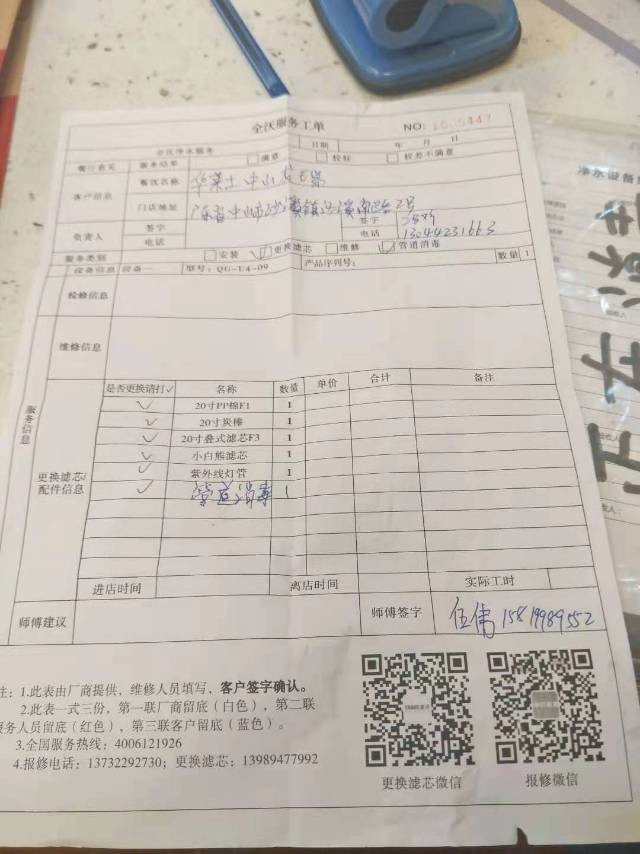 全沃服务工单
NO:
全沃净水服务 日期 年 月 日
餐厅意见 服务结果 满意 较好 较差不满意
客户信息 餐饮名称 华莱士中山
门店地址 广东省中山市沙溪镇
负责人 签字 签字
电话 电话 13044231663
服务类别 安装 ✓更换滤芯 维修 ✓管道消毒
设备信息 设备一 型号：QG-U4-09 产品序列号： 数量 1
服务信息
检修信息
维修信息
更换滤芯/配件信息
是否更换请打✓ 名称 数量 单价 合计 备注
✓ 20寸PP棉F1 1
✓ 20寸炭棒 1
✓ 20寸叠式滤芯F3 1
✓ 小白熊滤芯 1
✓ 紫外线灯管 1
✓ 管道消毒 1
进店时间 离店时间 实际工时
师傅建议 师傅签字 伍倩 15819989552
注：1.此表由厂商提供，维修人员填写，客户签字确认。
2.此表一式三份，第一联厂商留底（白色），第二联
服务人员留底（红色），第三联客户留底（蓝色）。
3.全国服务热线：4006121926
4.报修电话：13732292730；更换滤芯：13989477992
更换滤芯微信 报修微信
净水设备